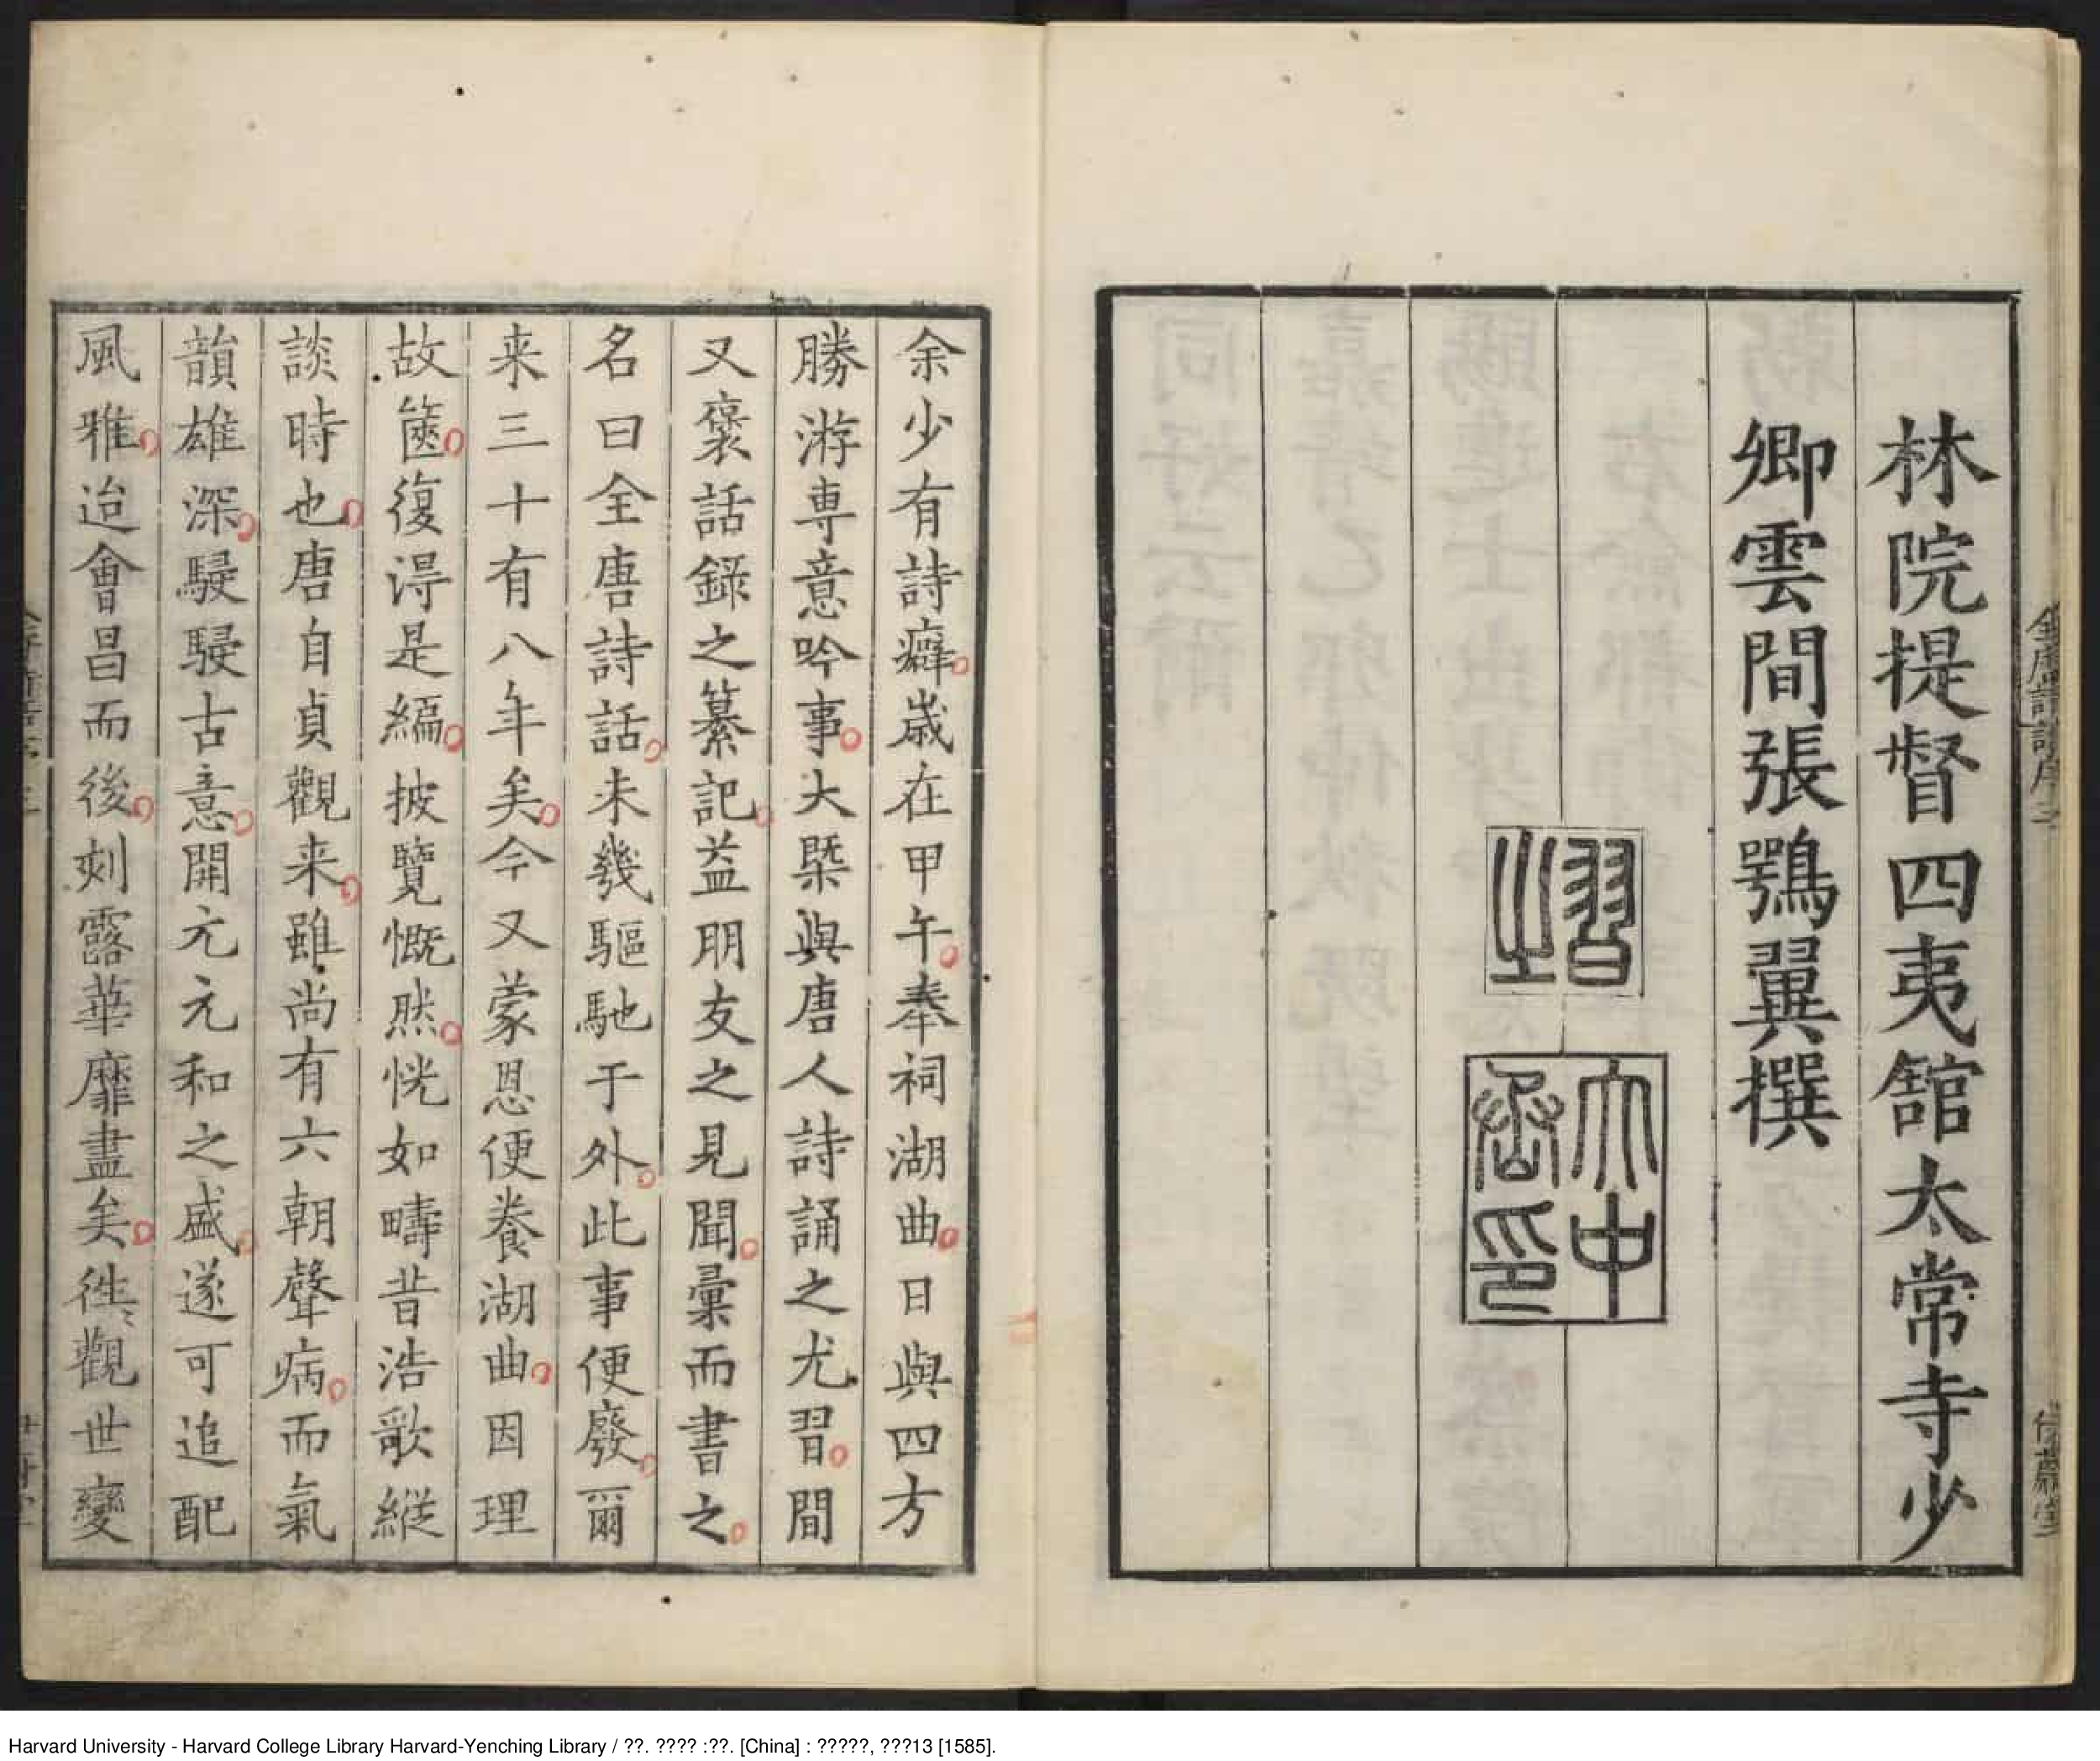 林院提督四夷館太常寺少
卿雲間張鶚翼撰
余少有詩癖歲在甲午奉祠湖曲日與四方
勝游専意吟事大槩與唐人詩誦之尤習間
又褒話錄之纂記益朋友之見聞彙而書之
名曰全唐詩話未幾驅馳于外此事便廢爾
来三十有八年矣今又蒙恩便養湖曲因理
故篋復淂是編披覽慨然恍如疇昔浩歌縱
談時也唐自貞觀来雖尚有六朝聲病而氣
韻雄深駸駸古意開元元和之盛遂可追配
風雅迨會昌而後刻露華靡盡矣徃〻觀世變
Harvard University - Harvard College Library Harvard-Yenching Library / ??. ???? :??. [China] : ?????, ???13 [1585].